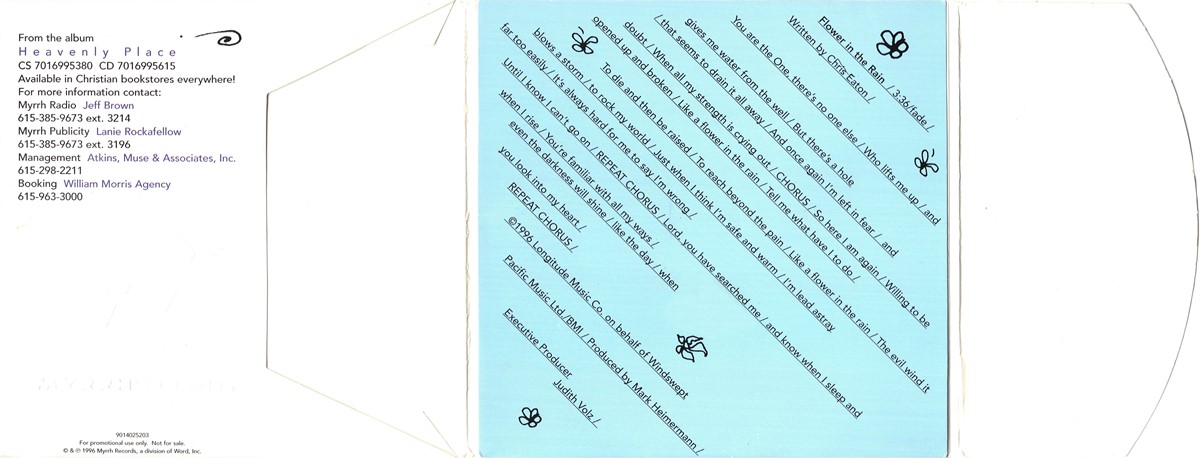 From the album
Heavenly Place
CS 7016995380 CD 7016995615
Available in Christian bookstores everywhere!
For more information contact:
Myrrh Radio Jeff Brown
615-385-9673 ext. 3214
Myrrh Publicity Lanie Rockafellow
615-385-9673 ext. 3196
Management Atkins, Muse & Associates, Inc.
615-298-2211
Booking William Morris Agency
615-963-3000
9014025203
For promotional use only. Not for sale.
© & ℗ 1996 Myrrh Records, a division of Word, Inc.
Flower in the Rain / 3:36/fade /
Written by Chris Eaton /
You are the One, there's no one else / Who lifts me up / and
gives me water from the well / But there's a hole
/ that seems to drain it all away / And once again I'm left in fear / and
doubt / When all my strength is crying out / CHORUS / So here I am again / Willing to be
opened up and broken / Like a flower in the rain / Tell me what have I to do /
To die and then be raised / To reach beyond the pain / Like a flower in the rain / The evil wind it
blows a storm / to rock my world / Just when I think I'm safe and warm / I'm lead astray
far too easily / It's always hard for me to say I'm wrong /
Until I know I can't go on / REPEAT CHORUS / Lord, you have searched me / and know when I sleep and
when I rise / You're familiar with all my ways /
even the darkness will shine / like the day / when
you look into my heart /
REPEAT CHORUS /
©1996 Longitude Music Co. on behalf of Windswept
Pacific Music Ltd./BMI / Produced by Mark Heimermann /
Executive Producer
Judith Volz /